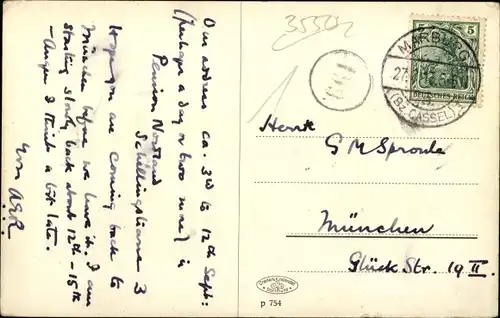 Our address ca. 3rd to 12th Sept:
(perhaps a day or two more) is
Pension Nordland
Schillingstrasse 3
Hope you are coming back to
München before we leave it. I am
starting slowly back about 12th - 15th
- August I think a bit late.
35502
MARBURG
27.
(Bz. CASSEL)
5
DEUTSCHES REICH
Herrn
G M Sproule
München
Glück Str. 19 II.
p 754